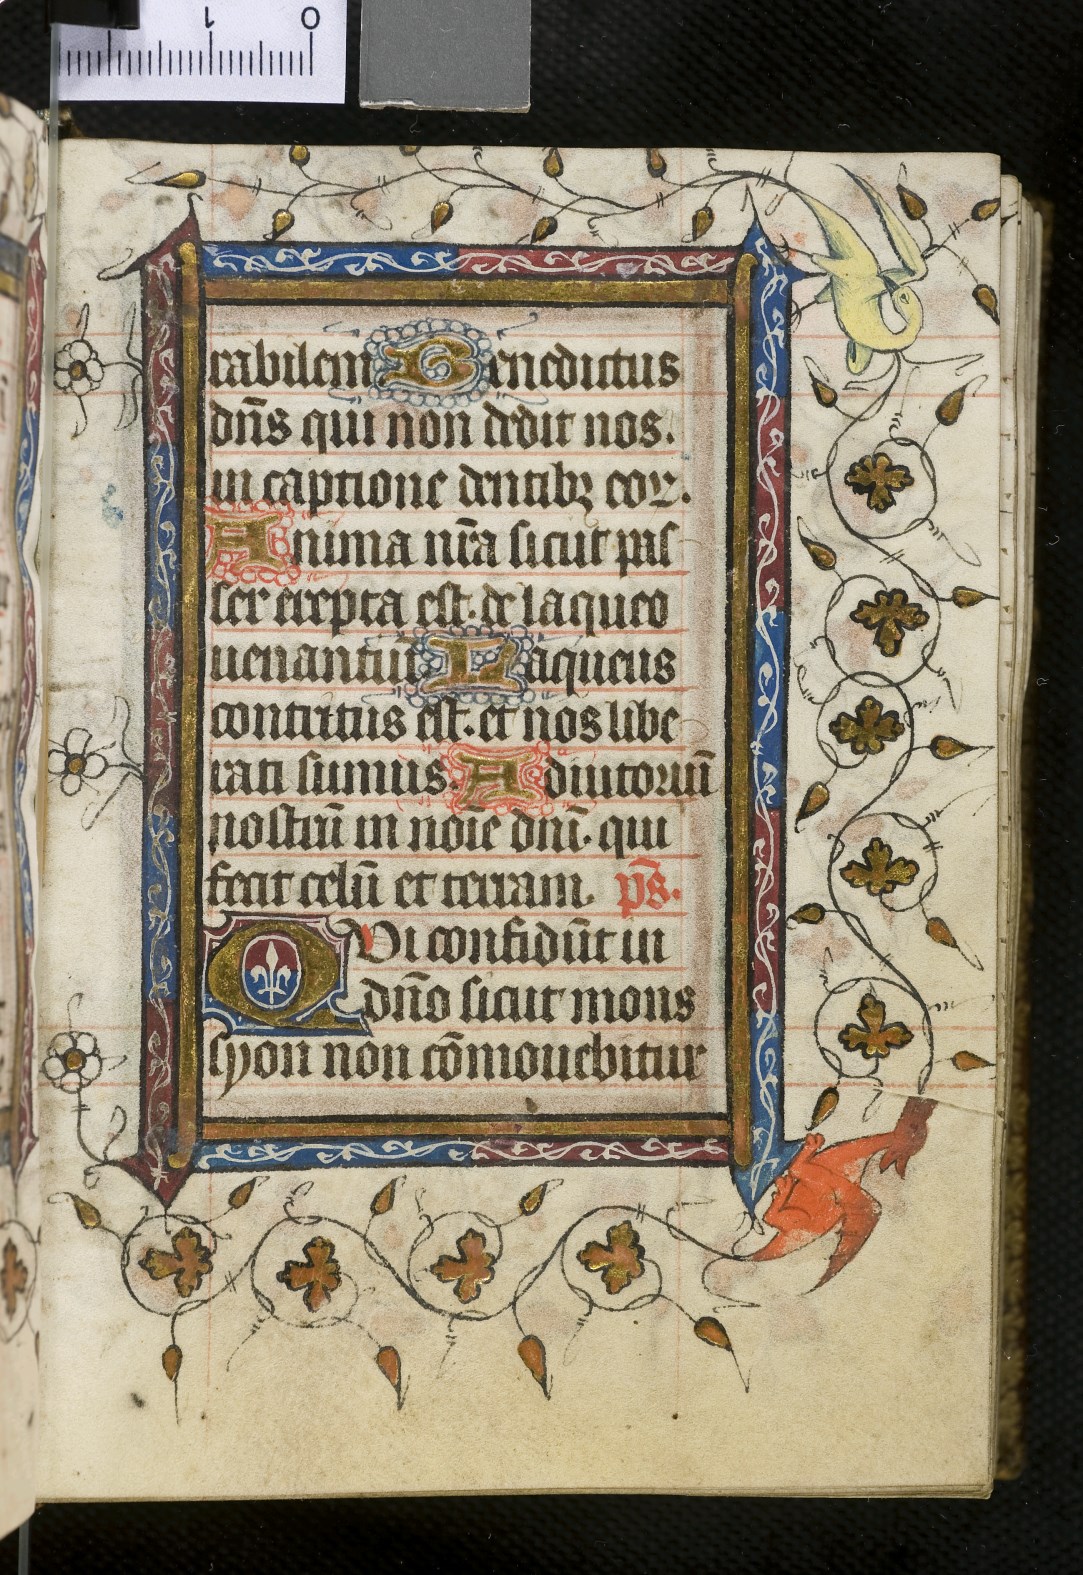 0 1
rabilem Benedictus
dn̄s qui non dedit nos.
in captione dentibꝫ eoꝝ.
Anima nr̄a sicut pas
ser erepta est. de laqueo
uenantiū Laqueus
contritus est. et nos libe
rati sumus. Adiutoriū
nostrū in noīe dnī. qui
fecit celū et terram. ps̄.
QVi confidūt in
dn̄o sicut mons
syon non cōmouebitur